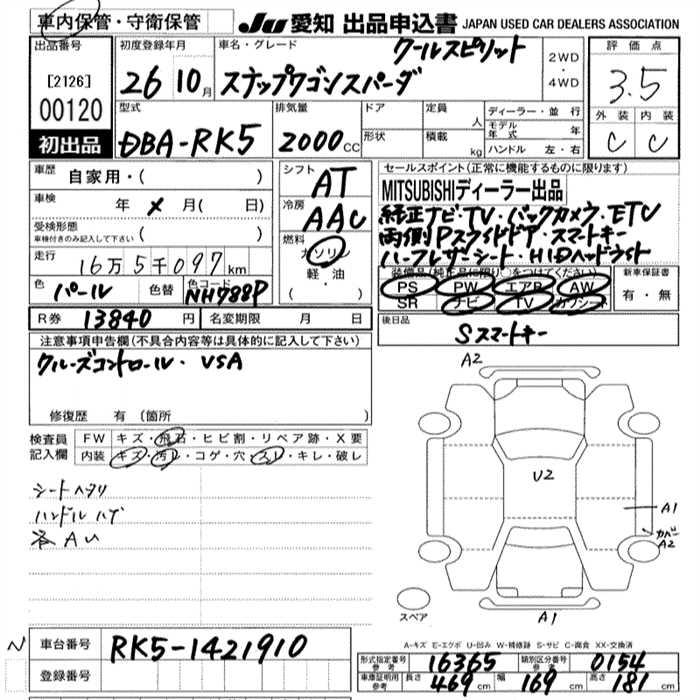 車内保管・守衛保管
JU 愛知 出品申込書 JAPAN USED CAR DEALERS ASSOCIATION
出品番号
[2126]
00120
初出品
初度登録年月
26 10月
車名・グレード
クールスピリット
スナップワゴンスパーダ
2WD
・
4WD
評価点
3.5
外装 内装
C C
型式
DBA-RK5
排気量
2000cc
ドア
形状
定員
人
積載
kg
ディーラー・並行
モデル年式 年
ハンドル 左・右
車歴
自家用・( )
車検
年 メ 月( 日)
受検形態
車検付きのみ記入して下さい ( )
走行
16万5千097km
色
パール
色替
色コード
NH788P
シフト
AT
冷房
AAC
燃料
ガソリン
軽・油
( )
セールスポイント(正常に機能するものに限ります)
MITSUBISHIディーラー出品
純正ナビ・TV・バックカメラ・ETC
両側Pスライドドア・スマートキー
ハーフレザーシート・HIDヘッドライト
装備品(純正品に限り○をつけてください)
PS PW エアB AW
SR ナビ TV カワシート
新車保証書
有・無
R券 13840円
名変期限 月 日
後日品
Sスマートキー
注意事項申告欄(不具合内容等は具体的に記入して下さい)
クルーズコントロール・VSA
修復歴 有(箇所 )
検査員記入欄
FW キズ・飛石・ヒビ割・リペア跡・X要
内装 キズ・汚レ・コゲ・穴・スレ・キレ・破レ
シートヘタリ
ハンドルハゲ
各AU
A2
U2
A1
カバー
A2
スペア
A1
A-キズ E-エクボ U-凹み W-補修跡 S-サビ C-腐食 XX-交換済
N
車台番号 RK5-1421910
登録番号
形式指定番号参考 16365 類別区分番号参考 0154
車庫証明用参考 長さ 469cm 幅 169cm 高さ 181cm